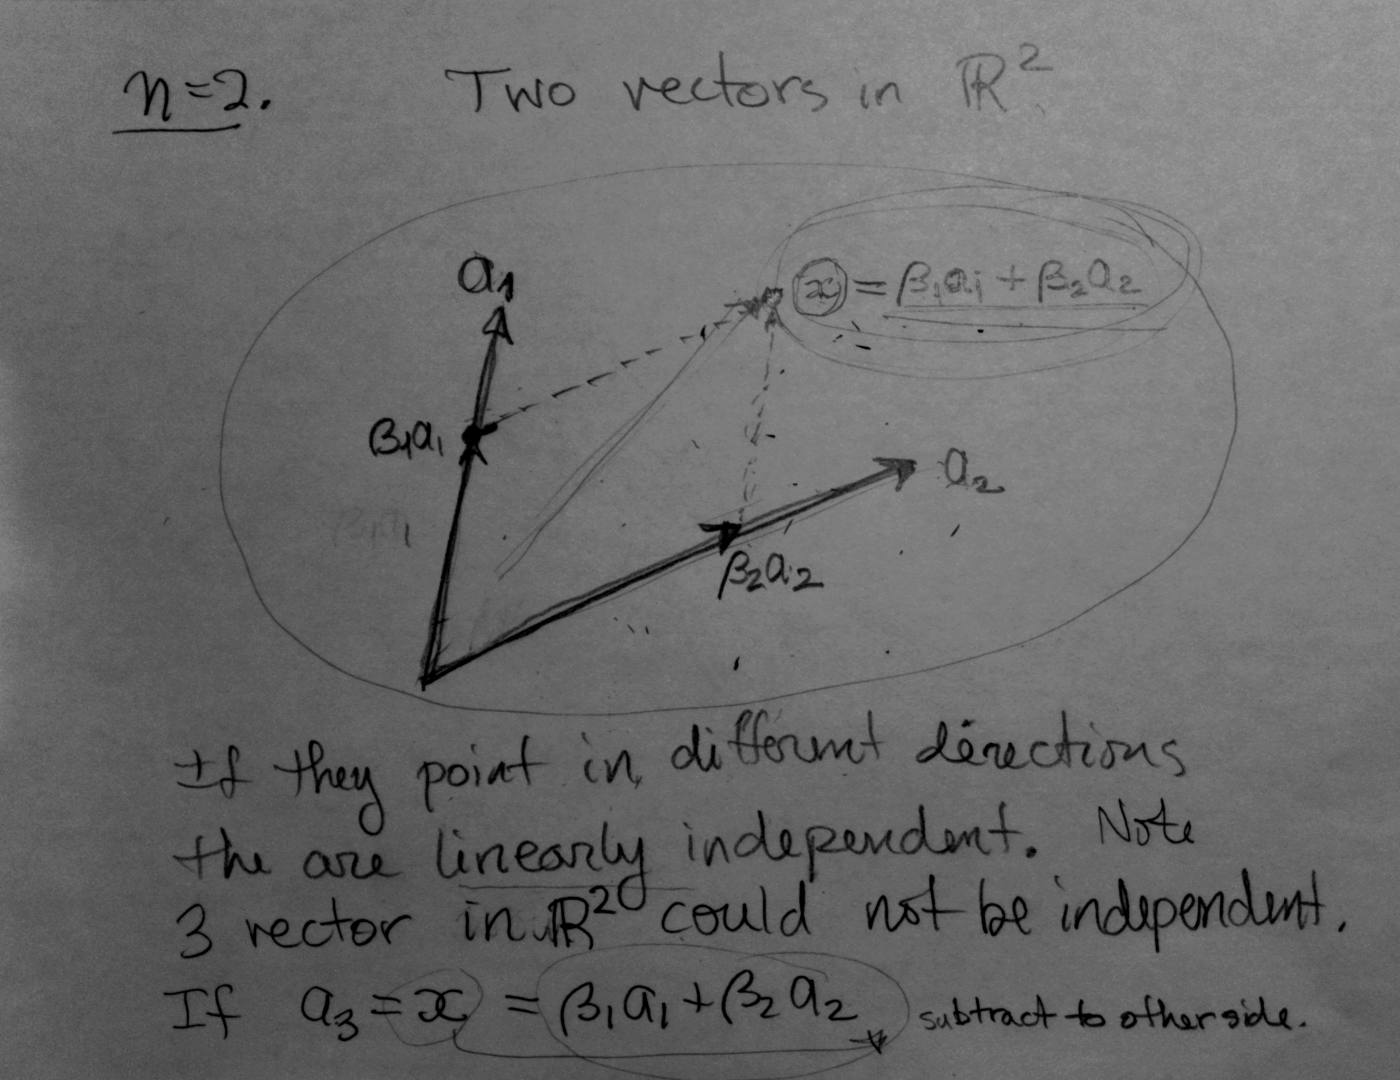 n=2. Two vectors in ℝ²
a₁
x = β₁a₁ + β₂a₂
β₁a₁
a₂
β₁a₁
β₂a₂
If they point in different directions
the are linearly independent. Note
3 vector in ℝ² could not be independent.
If a₃ = x = β₁a₁ + β₂a₂ subtract to other side.